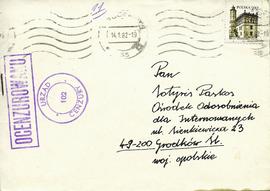 14.1.82-12
POLSKA
OCENZUROWANO
URZĄD
102
CENZURY
Pan
Sotyris Pastos
Ośrodek Odosobnienia
dla Internowanych
ul. Sienkiewicza 23
49-200 Grodków Śl.
woj. opolskie